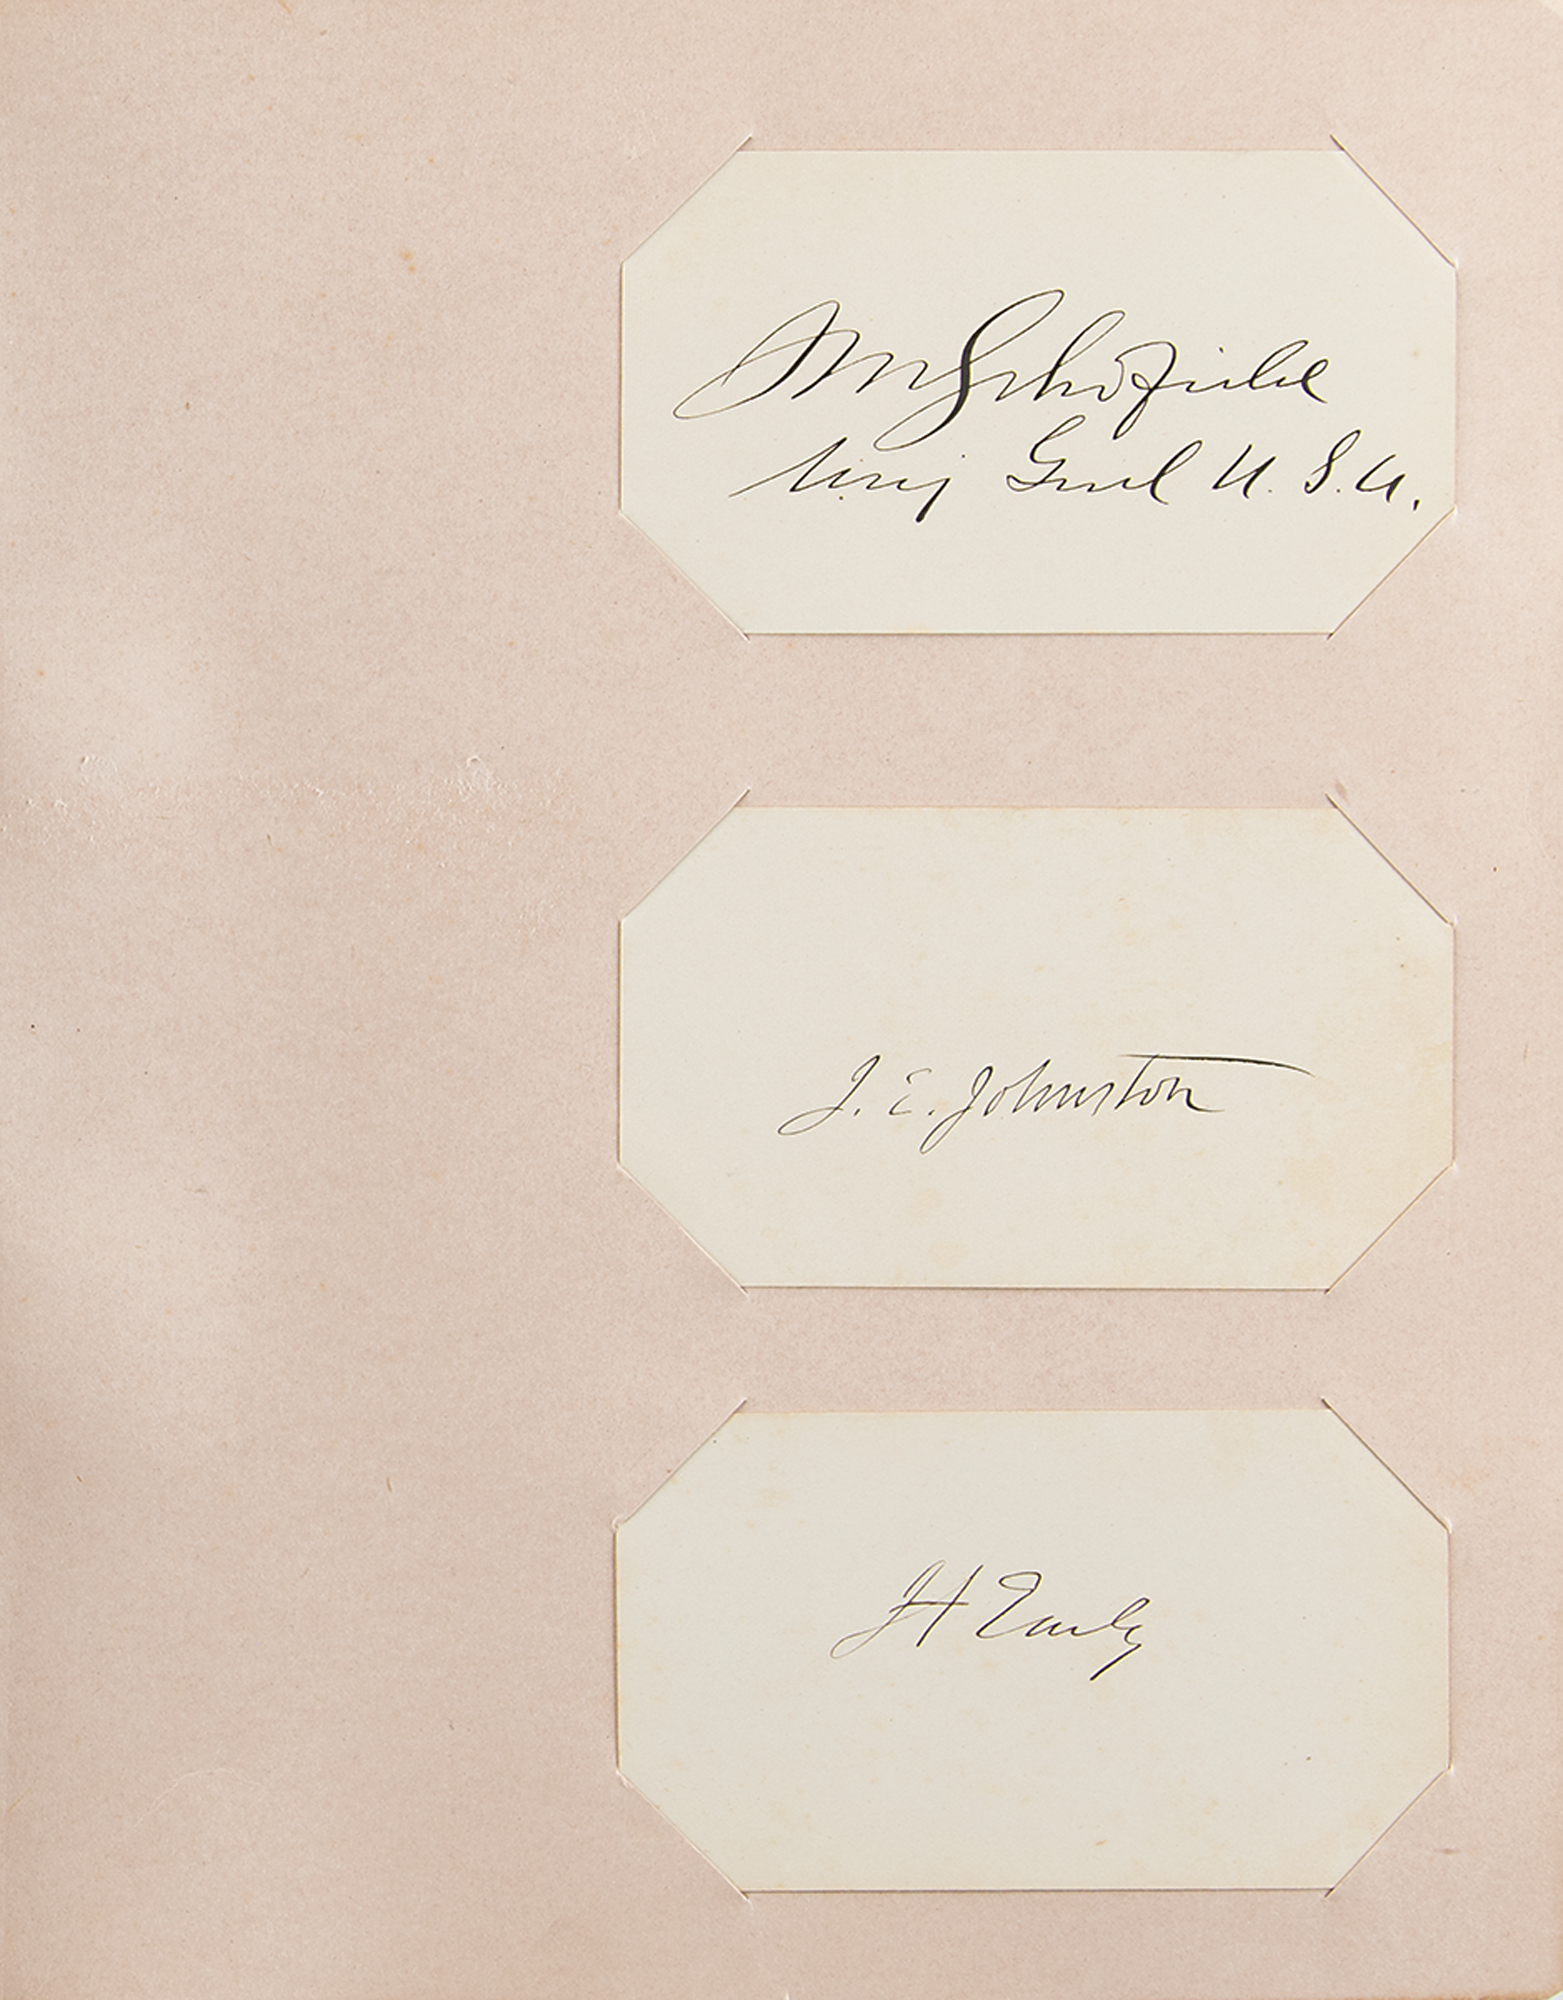 JM Schofield
Maj Genl U.S.A.
J. E. Johnston
JA Early